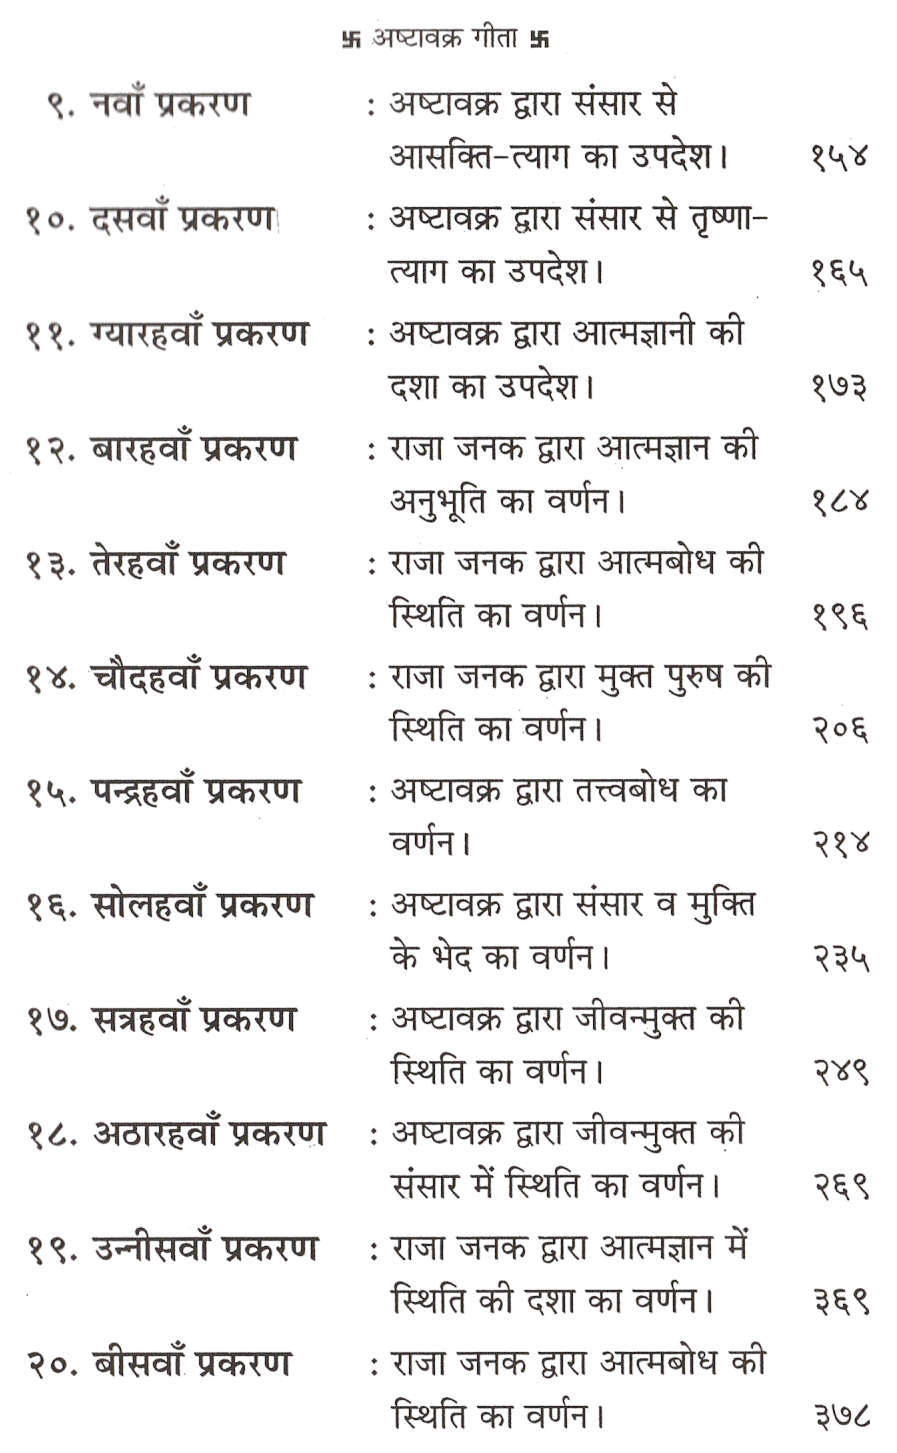 卐 अष्टावक्र गीता 卐
९. नवाँ प्रकरण : अष्टावक्र द्वारा संसार से
आसक्ति-त्याग का उपदेश। १५४
१०. दसवाँ प्रकरण : अष्टावक्र द्वारा संसार से तृष्णा-
त्याग का उपदेश। १६५
११. ग्यारहवाँ प्रकरण : अष्टावक्र द्वारा आत्मज्ञानी की
दशा का उपदेश। १७३
१२. बारहवाँ प्रकरण : राजा जनक द्वारा आत्मज्ञान की
अनुभूति का वर्णन। १८४
१३. तेरहवाँ प्रकरण : राजा जनक द्वारा आत्मबोध की
स्थिति का वर्णन। १९६
१४. चौदहवाँ प्रकरण : राजा जनक द्वारा मुक्त पुरुष की
स्थिति का वर्णन। २०६
१५. पन्द्रहवाँ प्रकरण : अष्टावक्र द्वारा तत्त्वबोध का
वर्णन। २१४
१६. सोलहवाँ प्रकरण : अष्टावक्र द्वारा संसार व मुक्ति
के भेद का वर्णन। २३५
१७. सत्रहवाँ प्रकरण : अष्टावक्र द्वारा जीवन्मुक्त की
स्थिति का वर्णन। २४९
१८. अठारहवाँ प्रकरण : अष्टावक्र द्वारा जीवन्मुक्त की
संसार में स्थिति का वर्णन। २६९
१९. उन्नीसवाँ प्रकरण : राजा जनक द्वारा आत्मज्ञान में
स्थिति की दशा का वर्णन। ३६९
२०. बीसवाँ प्रकरण : राजा जनक द्वारा आत्मबोध की
स्थिति का वर्णन। ३७८